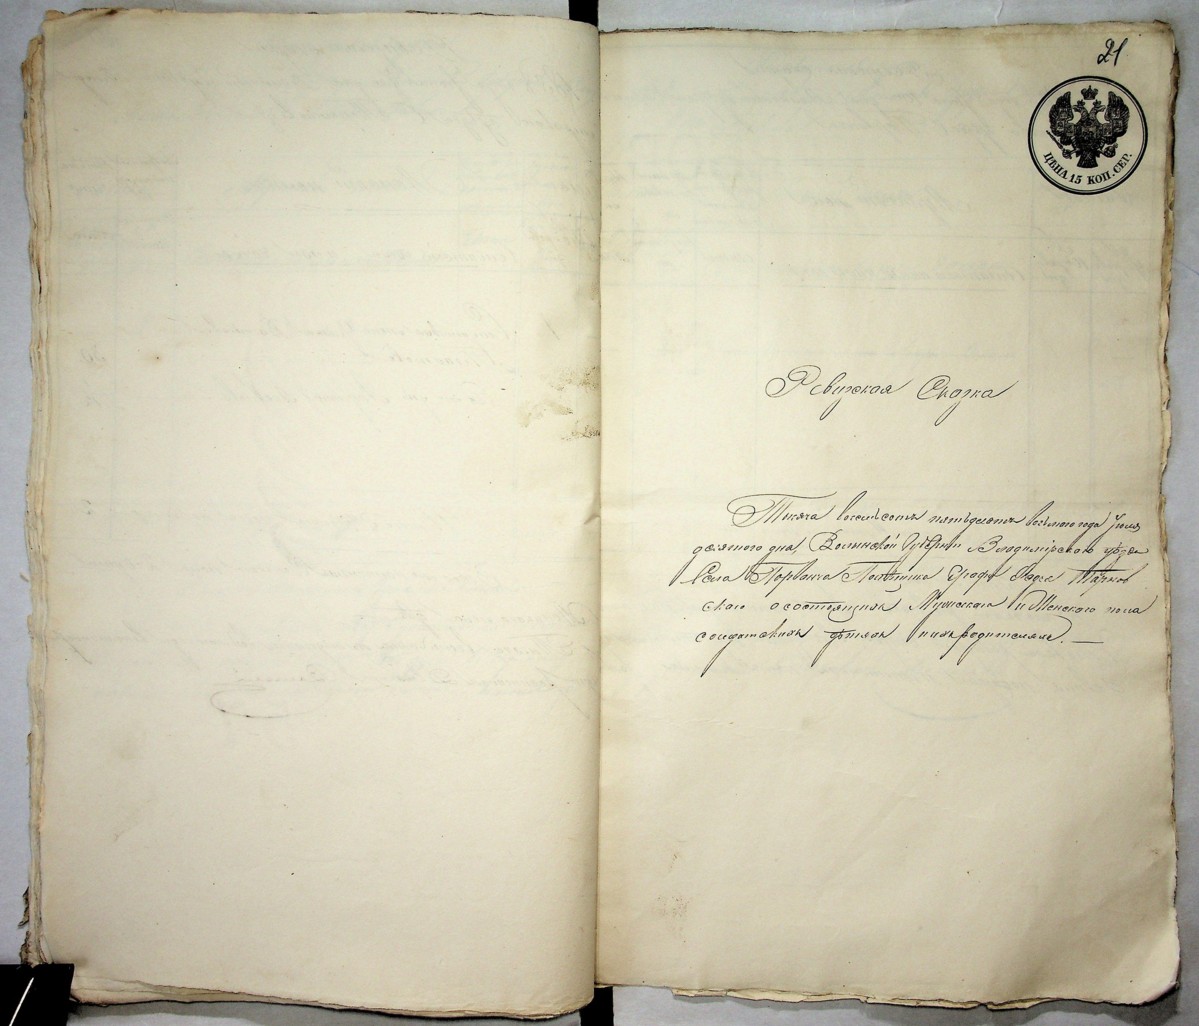 21
ЦѢНА 15 КОП. СЕР.
Ревизская Сказка
Тысяча восемьсотъ пятьдесятъ восьмаго года Іюля
десятого дня, Волынской Губерніи Владимірскаго уѣзда
Села Помѣщика Графа Тарнов
скаго о состоящихъ Мужескаго и Женскаго пола
солдатскихъ дѣтяхъ и ихъ родителяхъ. —